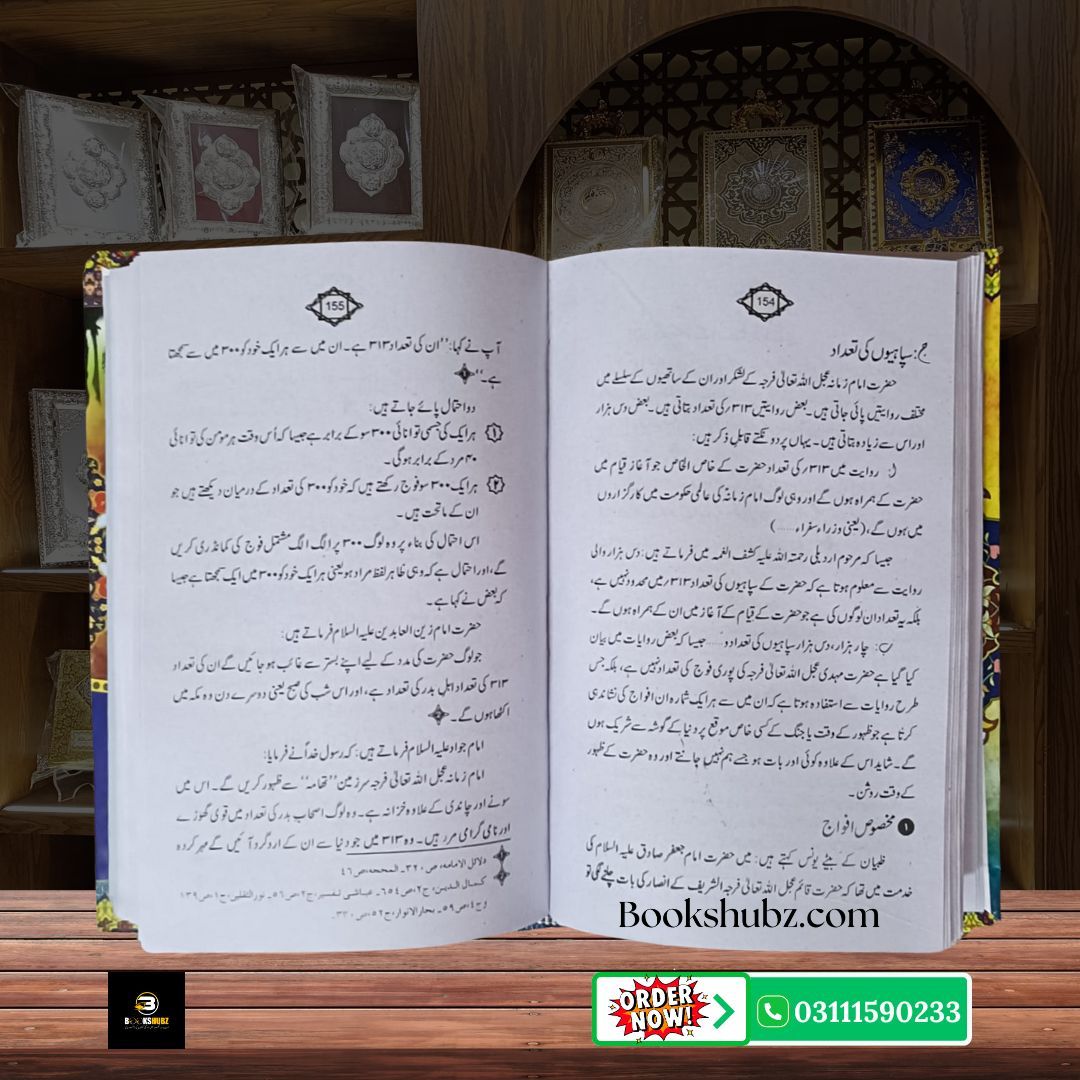 154
ج: سپاہیوں کی تعداد
حضرت امام زمانہ عجل اللہ تعالیٰ فرجہ کے لشکر اور ان کے ساتھیوں کے سلسلے میں
مختلف روایتیں پائی جاتی ہیں۔ بعض روایتیں ۳۱۳؍ کی تعداد بتاتی ہیں۔ بعض دس ہزار
اور اس سے زیادہ بتاتی ہیں۔ یہاں پر دو نکتے قابلِ ذکر ہیں:
روایت میں ۳۱۳؍ کی تعداد حضرت کے خاص الخاص جو آغاز قیام میں
حضرت کے ہمراہ ہوں گے اور وہی لوگ امام زمانہؑ کی عالمی حکومت میں کارگزاروں
میں ہوں گے، (یعنی وزراء سفراء......)
جیسا کہ مرحوم اردبیلی رحمتہ اللہ علیہ کشف الغمہ میں فرماتے ہیں: دس ہزار والی
روایت سے معلوم ہوتا ہے کہ حضرت کے سپاہیوں کی تعداد ۳۱۳؍ میں محدود نہیں ہے،
بلکہ یہ تعداد ان لوگوں کی ہے جو حضرت کے قیام کے آغاز میں ان کے ہمراہ ہوں گے۔
ب: چار ہزار، دس ہزار سپاہیوں کی تعداد وہ...... جیسا کہ بعض روایات میں بیان
کیا گیا ہے حضرت مہدی عجل اللہ تعالیٰ فرجہ کی پوری فوج کی تعداد نہیں ہے، بلکہ جس
طرح روایات سے استفادہ ہوتا ہے کہ ان میں سے ہر ایک شمارہ ان افواج کی نشاندہی
کرتا ہے جو ظہور کے وقت یا جنگ کے کسی خاص موقع پر دنیا کے گوشہ سے شریک ہوں
گے۔ شاید اس کے علاوہ کوئی اور بات ہو جسے ہم نہیں جانتے اور وہ حضرت کے ظہور
کے وقت روشن۔
۱ مخصوص افواج
ظبیان کے بیٹے یونس کہتے ہیں: میں حضرت امام جعفر صادق علیہ السلام کی
خدمت میں تھا کہ حضرت قائم عجل اللہ تعالیٰ فرجہ الشریف کے انصار کی بات چلنے لگی تو
155
آپ نے کہا: ''ان کی تعداد ۳۱۳ ہے۔ ان میں سے ہر ایک خود کو ۳۰۰ میں سے سمجھتا
ہے۔'' ۱
دو احتمال پائے جاتے ہیں:
۱ ہر ایک کی جسمی توانائی ۳۰۰ سو کے برابر ہے جیسا کہ اُس وقت ہر مؤمن کی توانائی
۴۰ مرد کے برابر ہوگی۔
۲ ہر ایک ۳۰۰ سو فوج رکھتے ہیں کہ خود کو ۳۰۰ کی تعداد کے درمیان دیکھتے ہیں جو
ان کے ماتحت ہیں۔
اس احتمال کی بناء پر وہ لوگ ۳۰۰ پر الگ الگ مشتمل فوج کی کمانڈری کریں
گے، اور احتمال ہے کہ وہی ظاہر لفظ مراد ہو یعنی ہر ایک خود کو ۳۰۰ میں ایک سمجھتا ہے جیسا
کہ بعض نے کہا ہے۔
حضرت امام زین العابدین علیہ السلام فرماتے ہیں:
جو لوگ حضرت کی مدد کے لیے اپنے بستر سے غائب ہو جائیں گے ان کی تعداد
۳۱۳ کی تعداد اہلِ بدر کی تعداد ہے، اور اس شب کی صبح یعنی دوسرے دن وہ مکہ میں
اکٹھا ہوں گے۔ ۲
امام جواد علیہ السلام فرماتے ہیں: کہ رسول خداؐ نے فرمایا:
امام زمانہ عجل اللہ تعالیٰ فرجہ سرزمین ''تھامہ'' سے ظہور کریں گے۔ اس میں
سونے اور چاندی کے علاوہ خزانہ ہے۔ وہ لوگ اصحاب بدر کی تعداد میں قوی گھوڑے
اور نامی گرامی مرد ہیں۔ وہ ۳۱۳ میں جو دنیا سے ان کے ارد گرد آئیں گے مہر کردہ
۱ دلائل الامامہ، ص۳۲۰۔ المحجہ، ص۴٦
۲ کمال الدین، ج۲، ص٦٥٤۔ عیاشی تفسیر، ج۲، ص٥٦۔ نورالثقلین، ج۱، ص۱۳۹
و ج٤، ص۹۵۔ بحارالانوار، ج۵۲، ص۳۳۰۔
Bookshubz.com
BOOKSHUBZ
ORDER
NOW!
03111590233